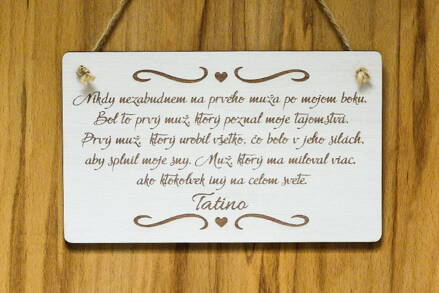 Nikdy nezabudnem na prvého muža po mojom boku.
Bol to prvý muž, ktorý poznal moje tajomstvá.
Prvý muž, ktorý urobil všetko, čo bolo v jeho silách,
aby splnil moje sny. Muž, ktorý ma miloval viac,
ako ktokoľvek iný na celom svete.
Tatino